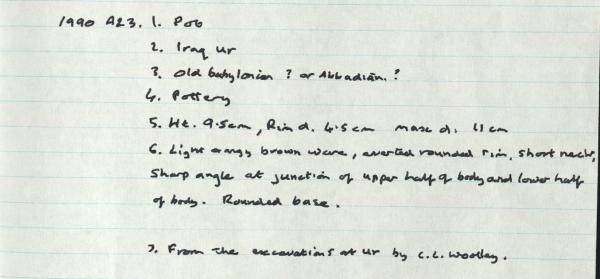 1990 A23. 1. Pot
2. Iraq Ur
3. Old Babylonian ? or Akkadian. ?
4. Pottery
5. Ht. 9.5cm, Rim d. 4.5cm max d. 11cm
6. Light orangy brown ware, everted rounded rim, short neck,
Sharp angle at junction of upper half of body and lower half
of body. Rounded base.
7. From the excavations at Ur by C.L. Woolley.